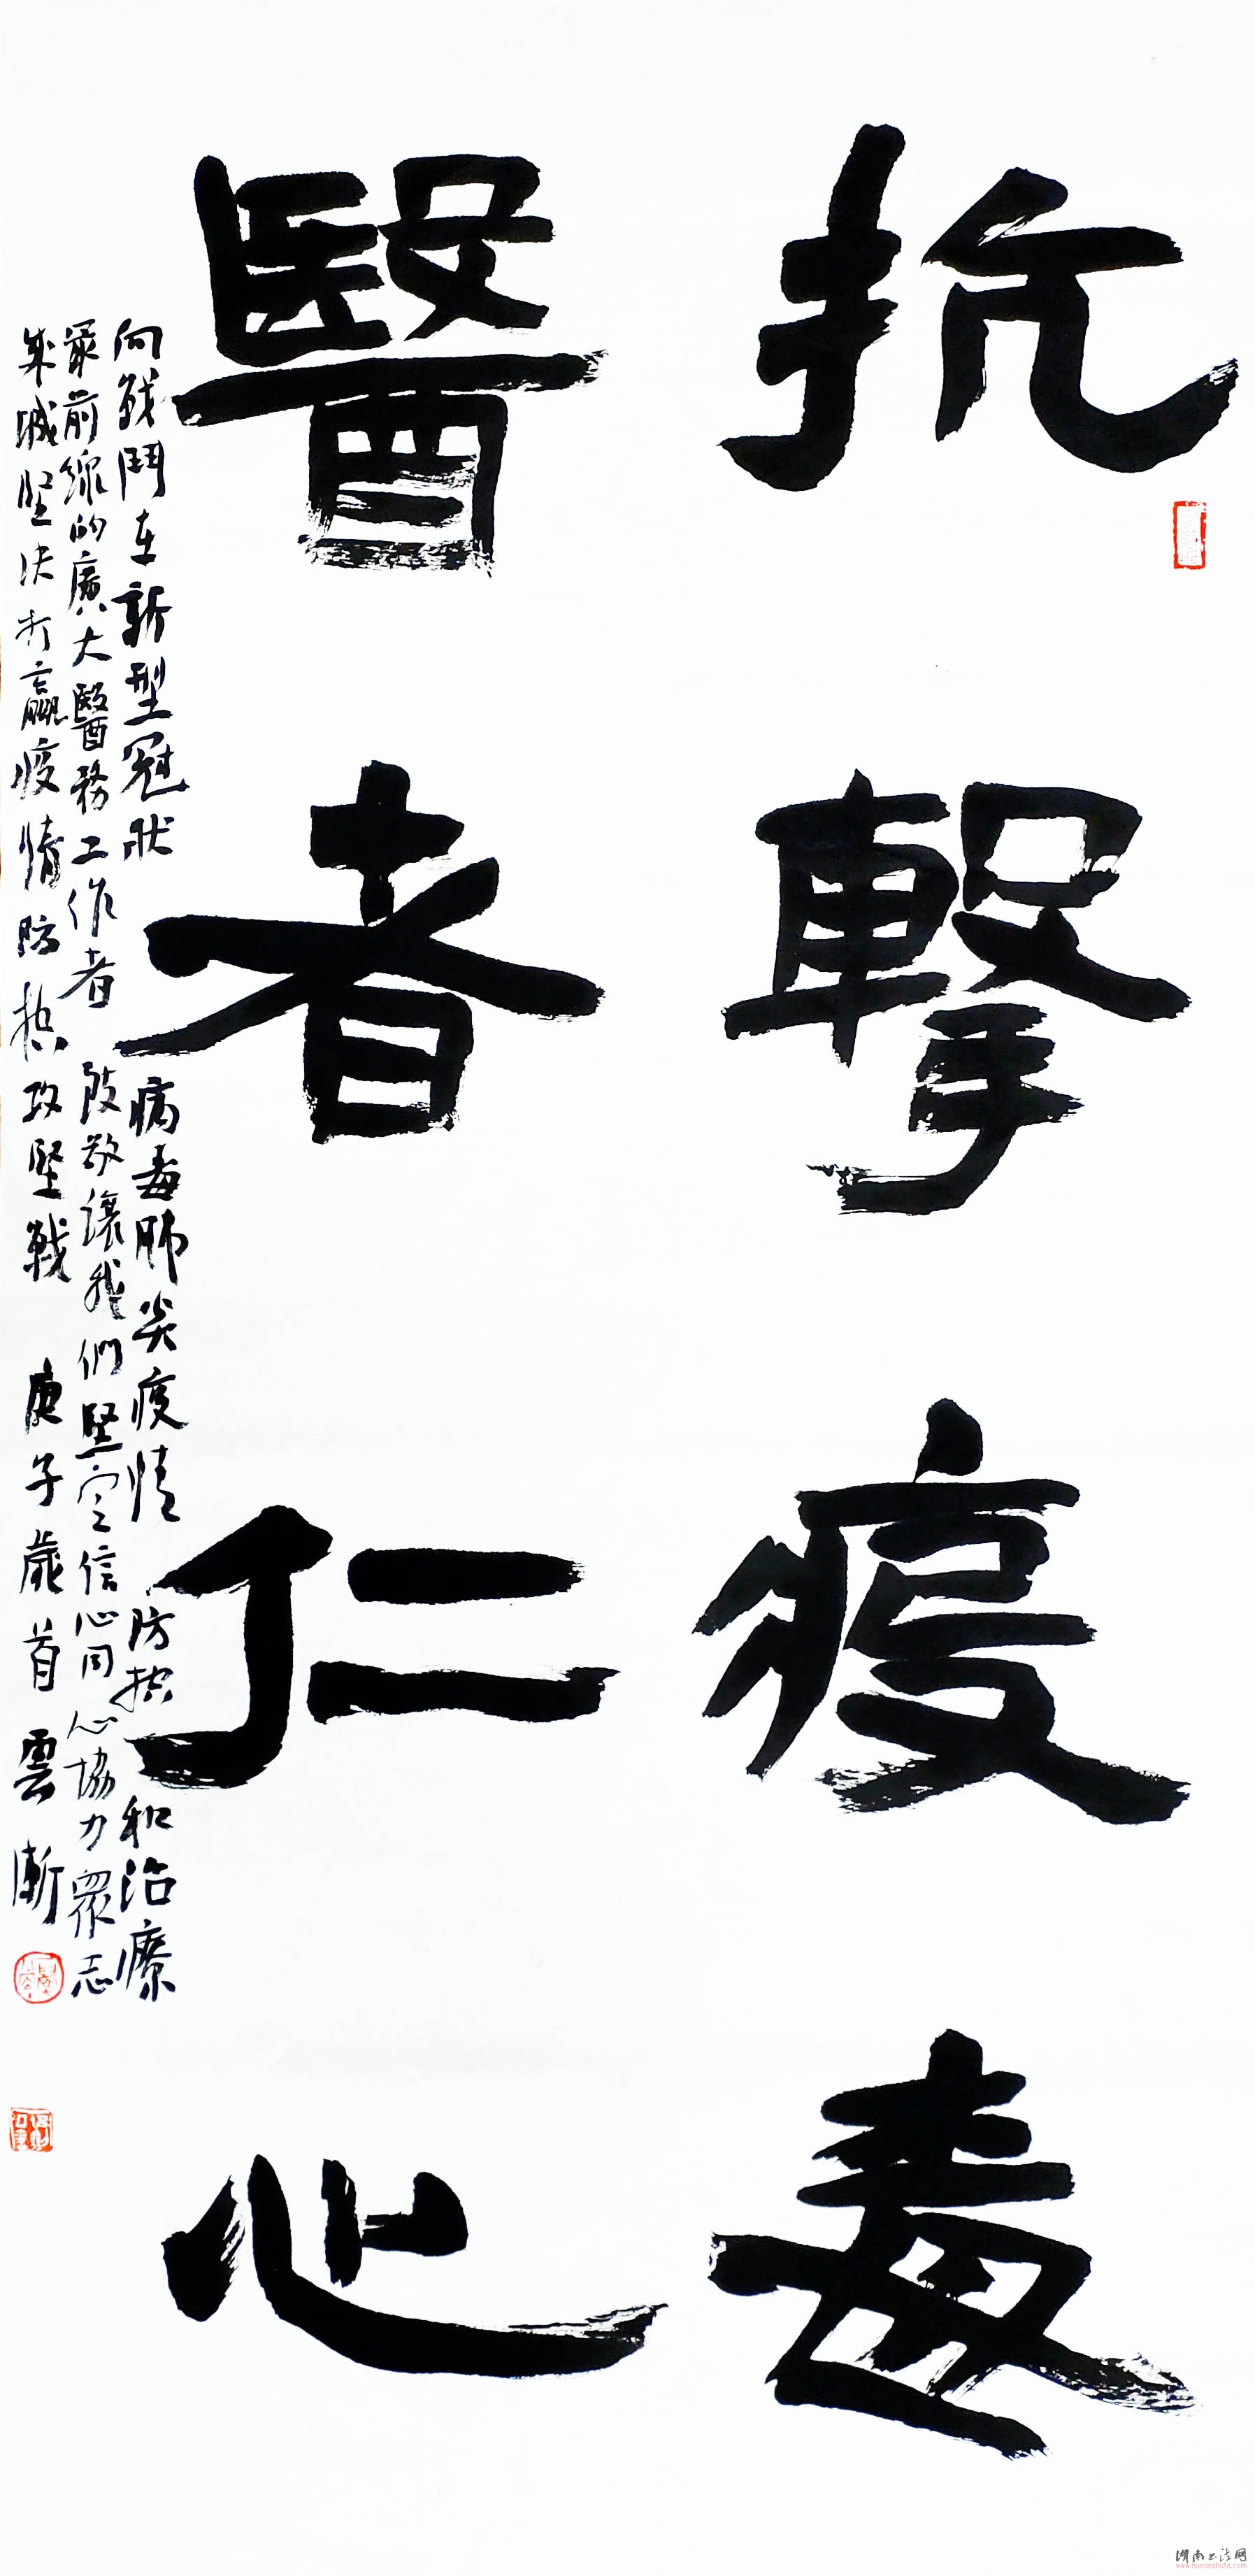 抗擊疫毒
醫者仁心
向戰鬥在新型冠狀病毒肺炎疫情防控和治療
最前線的廣大醫務工作者致敬讓我們堅定信心同心協力眾志
成城堅決打贏疫情防控攻堅戰 庚子歲首雲漸
湖南书法网
www.hunanshufa.com